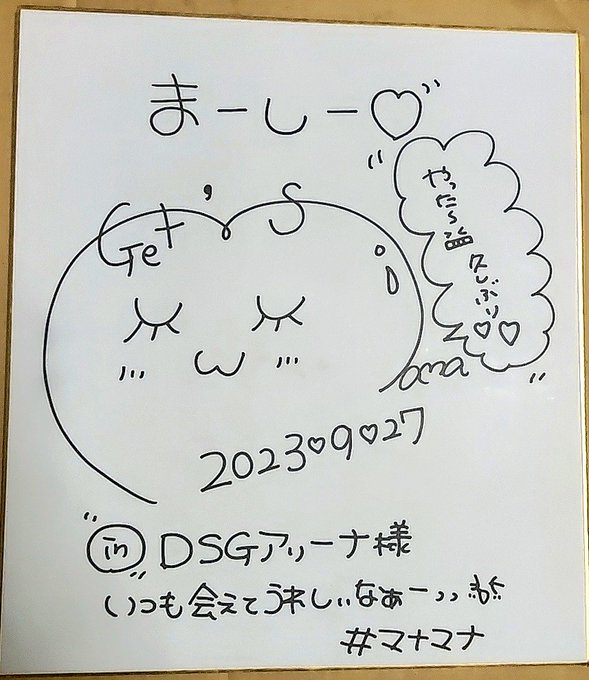 まーしー♡
Get's
やったら
久しぶり♡♡
2023♡9♡27
in DSGアリーナ様
いつも会えてうれしいなぁー
#マナマナ